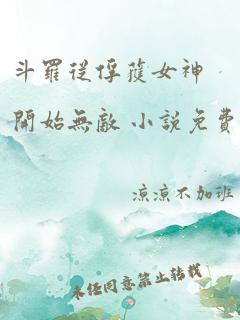 斗羅從俘蒦女神
開始無敵 小說免費
涼涼不加班
未经同意禁止转载